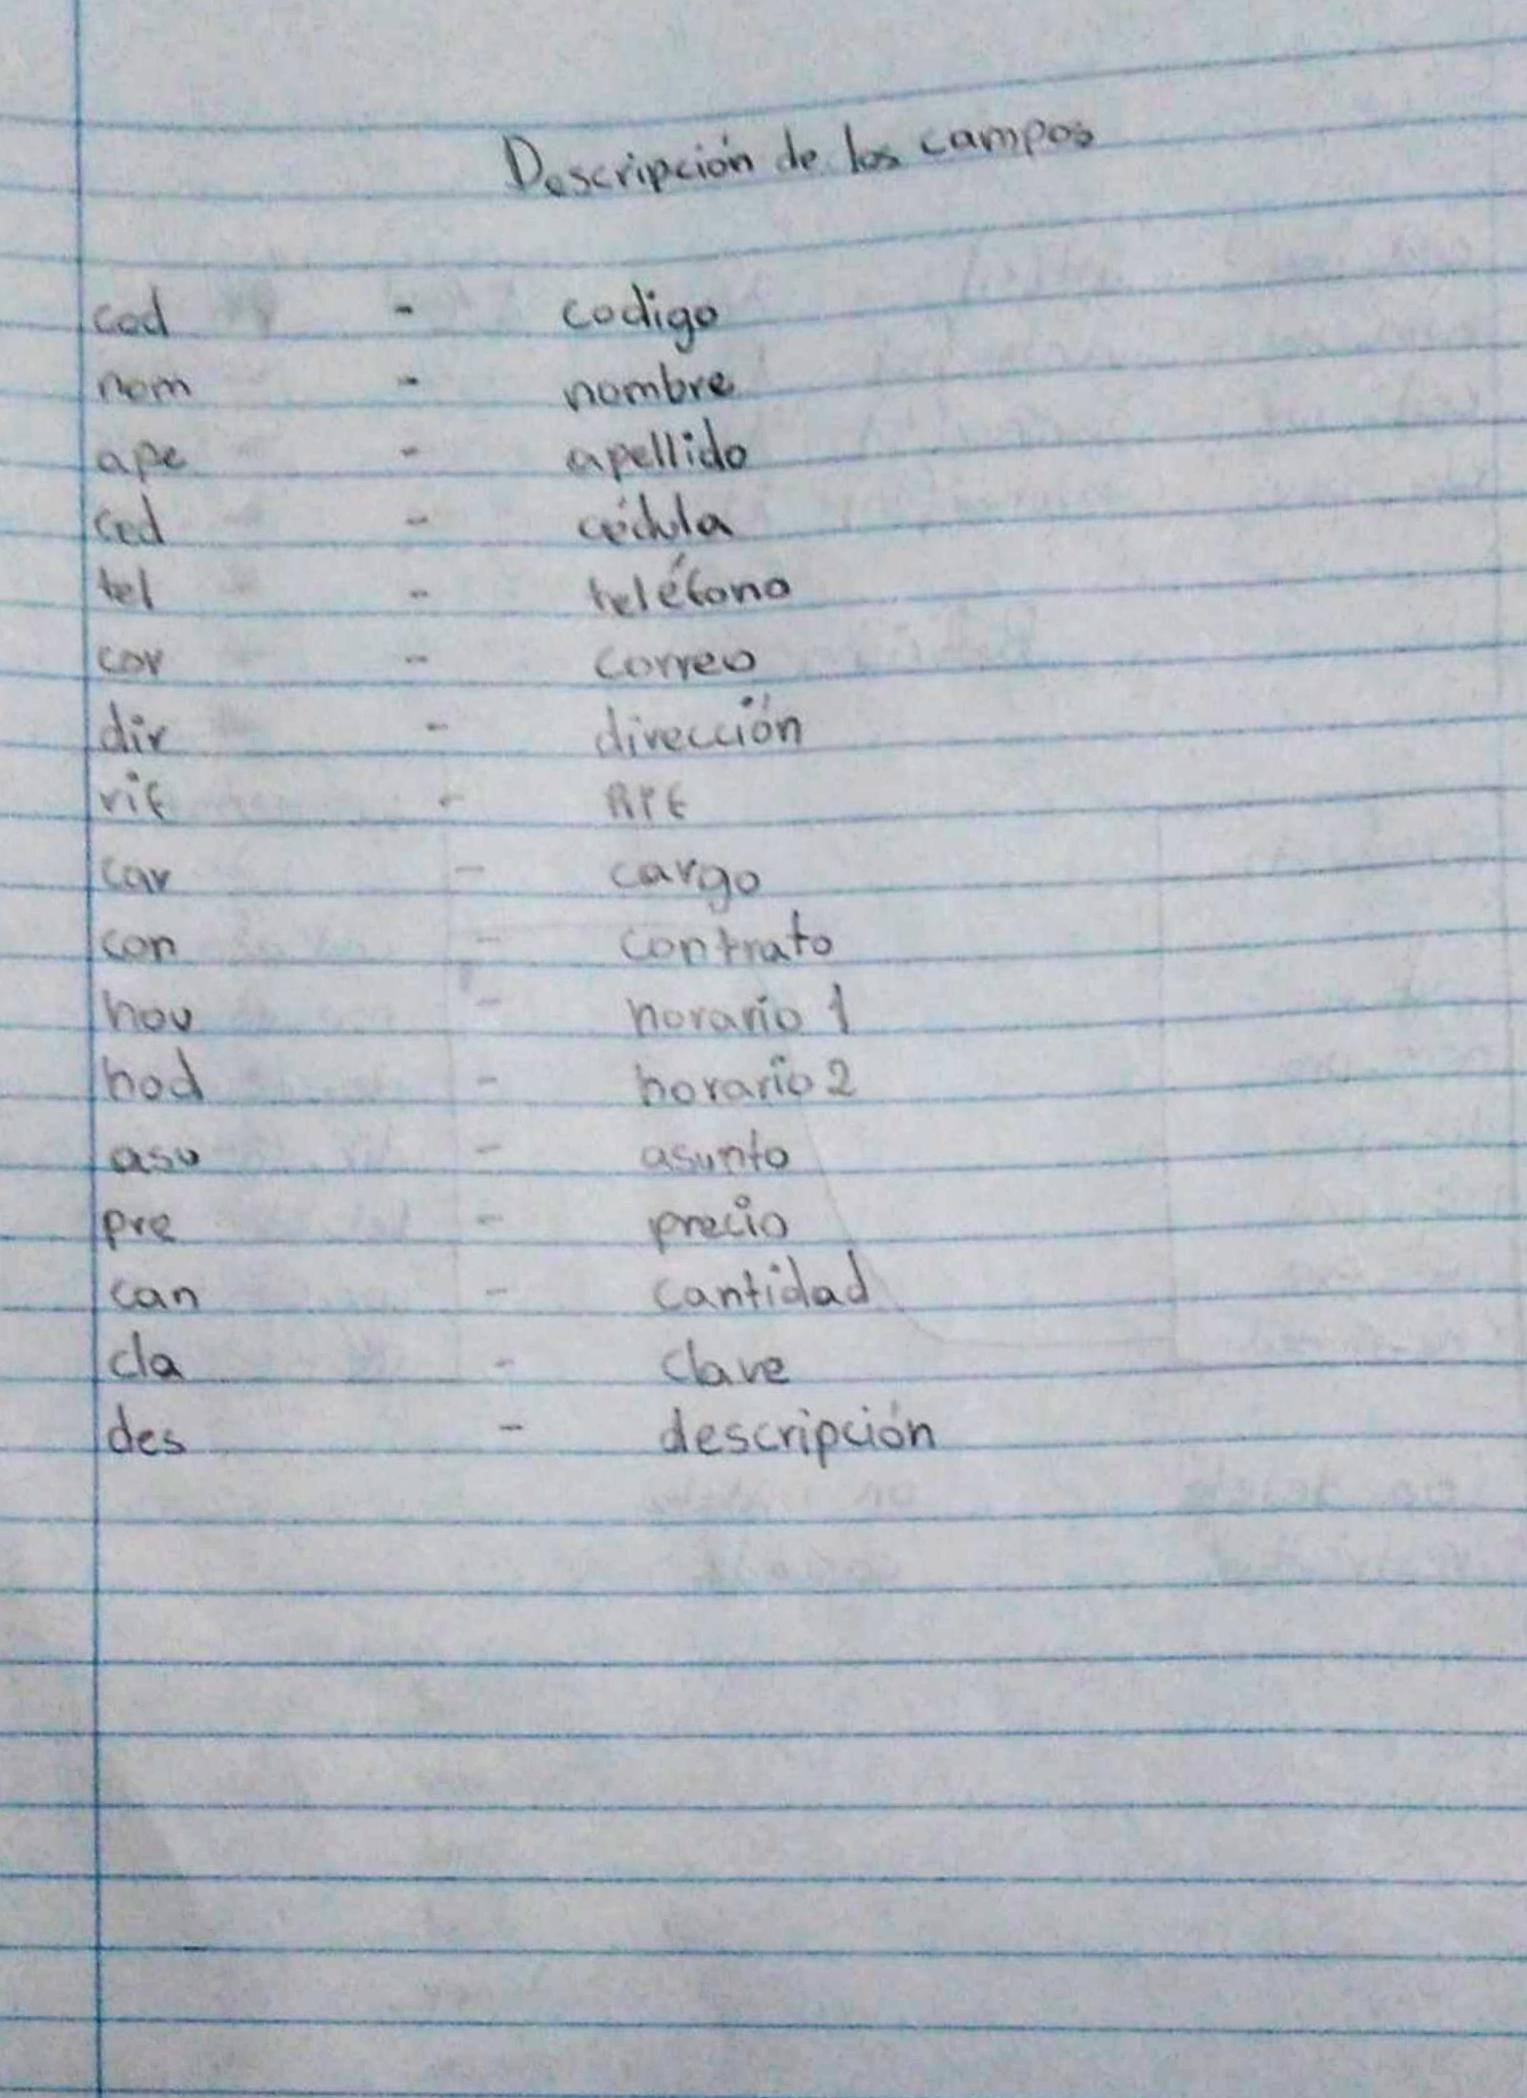 Descripción de los campos
cod - codigo
nom - nombre
ape - apellido
ced - cédula
tel - teléfono
cor - correo
dir - dirección
rif -
car - cargo
con - contrato
hou - horario 1
hod - horario 2
asu - asunto
pre - precio
can - cantidad
cla - clave
des - descripción